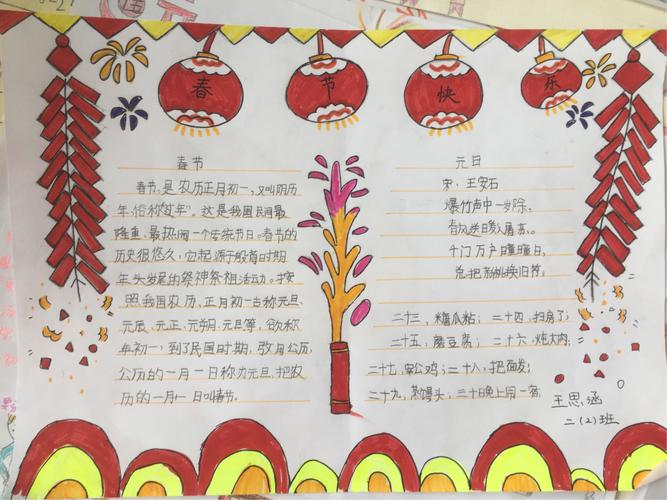 春节快乐
春节
春节,是农历正月初一,又叫阴历
年,俗称"过年"。这是我国民间最
隆重、最热闹一个传统节日。春节的
历史很悠久,它起源于殷商时期
年头岁尾的祭神祭祖活动。按
照我国农历,正月初一古称元旦、
元辰、元正、元朔、元旦等,俗称
年初一,到了民国时期,改用公历,
公历的一月一日称为元旦,把农
历的一月一日叫春节。
元日
宋·王安石
爆竹声中一岁除,
春风送日暖屠苏。
千门万户曈曈日,
总把新桃换旧符。
二十三,糖瓜粘;二十四,扫房子;
二十五,磨豆腐;二十六,炖大肉;
二十七,宰公鸡;二十八,把面发;
二十九,蒸馒头,三十日晚上闹一宿
王思涵
二(2)班